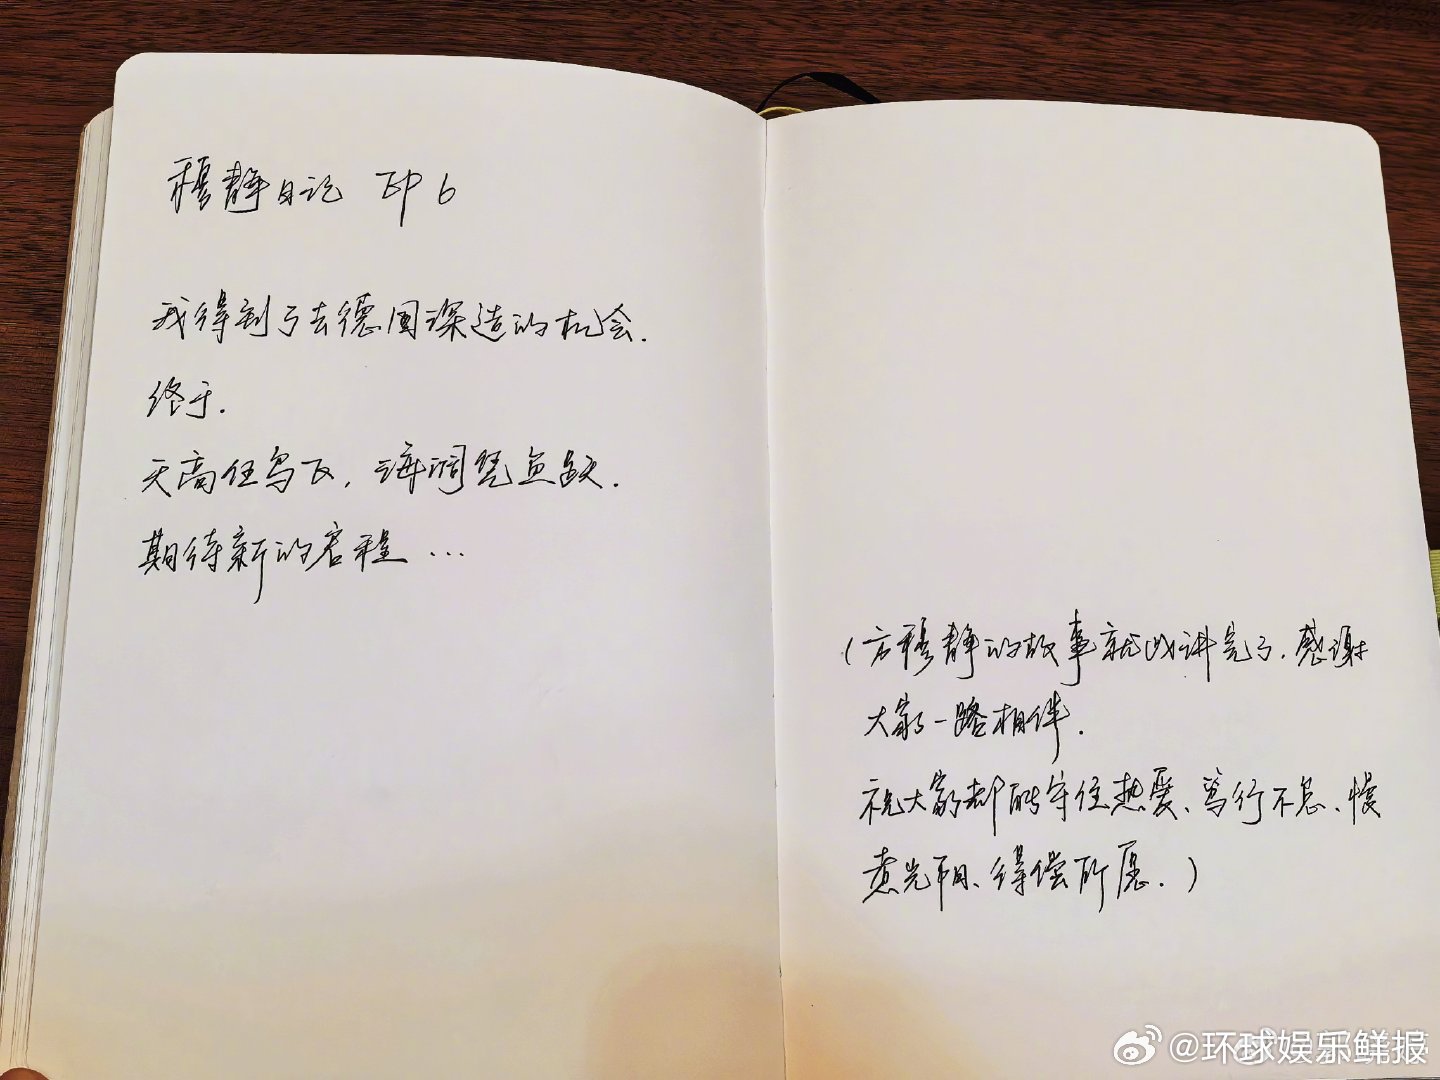 穆静日记 EP 6
我得到了去德国深造的机会.
终于.
天高任鸟飞, 海阔凭鱼跃.
期待新的启程 ...
(方穆静的故事就此讲完了. 感谢
大家一路相伴.
祝大家都能守住热爱、笃行不怠、慢
煮光阴、得偿所愿. )
@环球娱乐鲜报